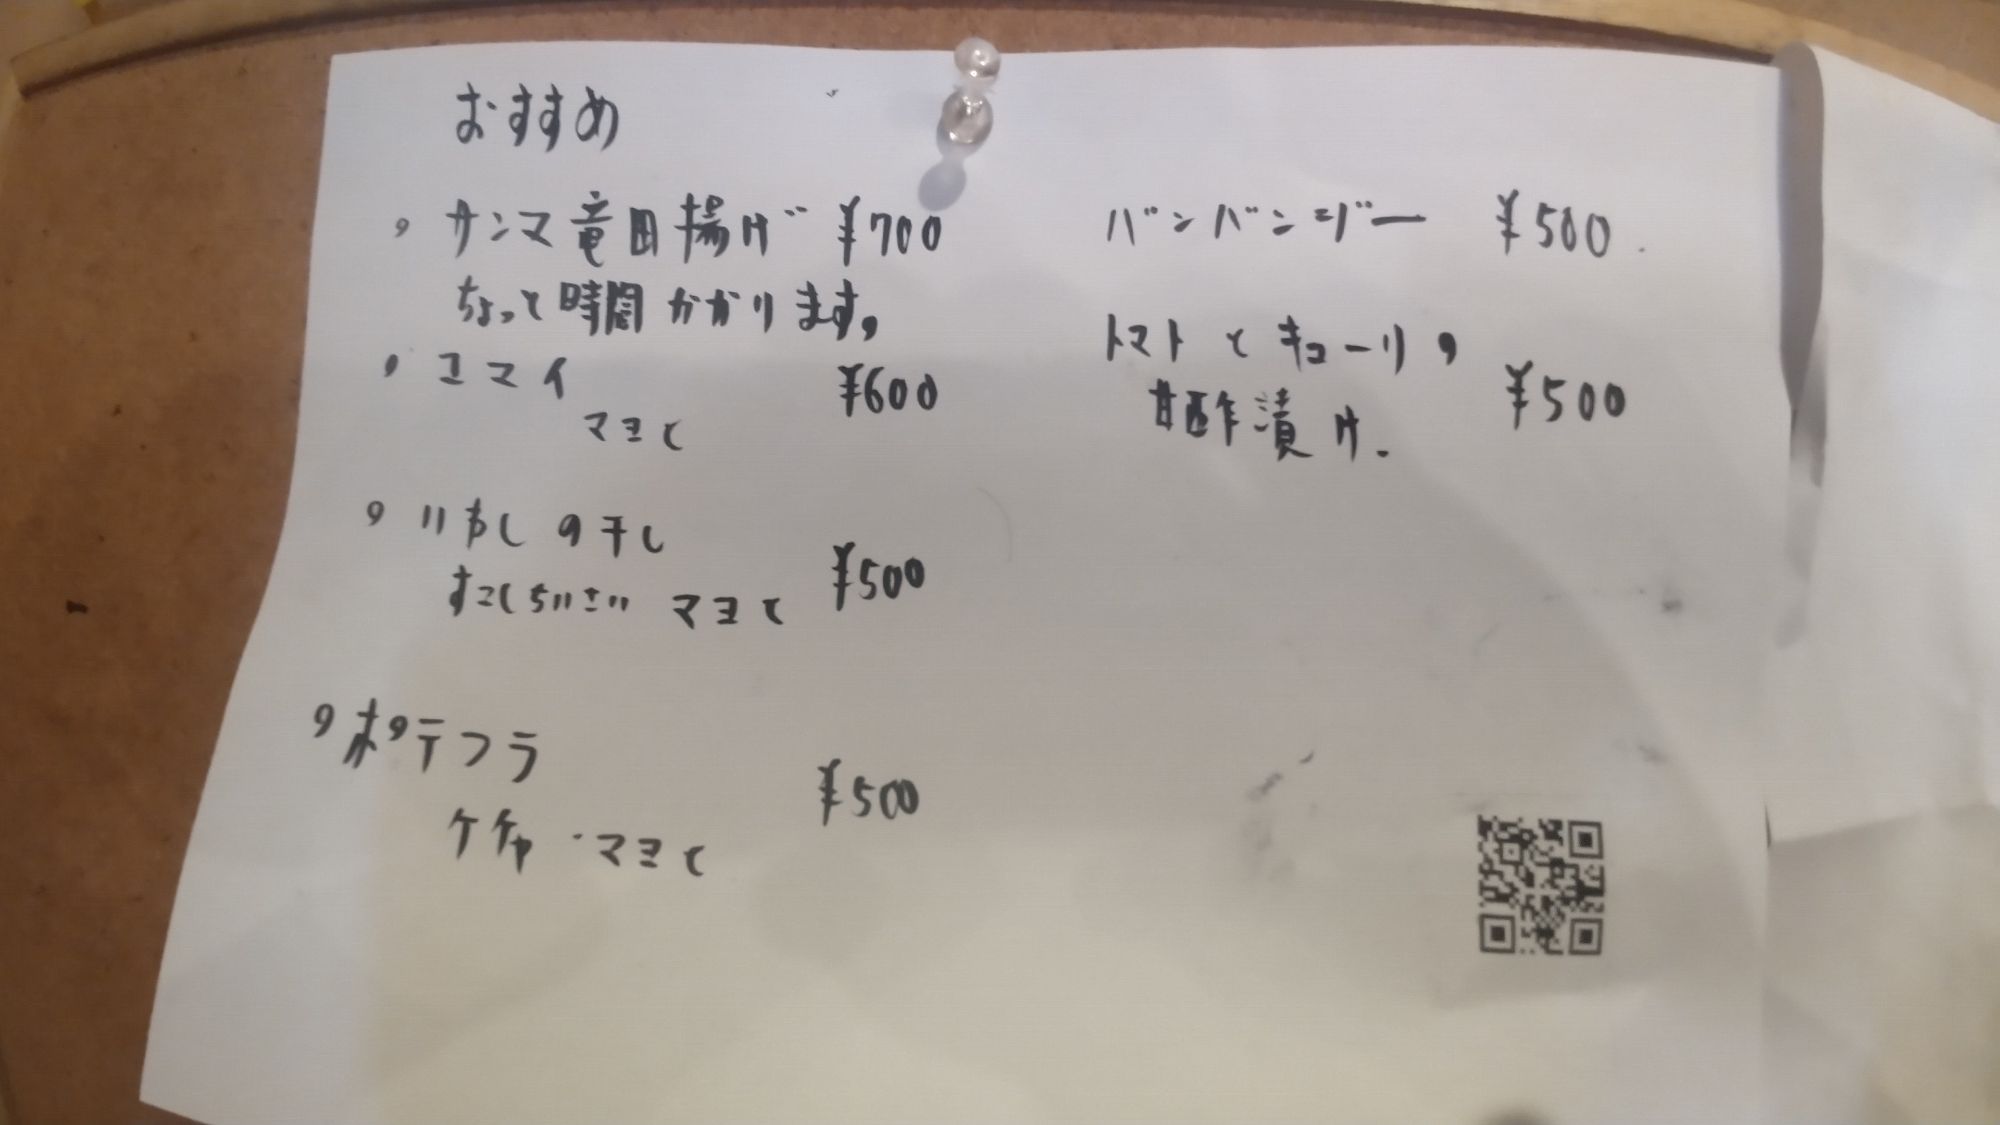 おすすめ
・サンマ竜田揚げ ¥700
ちょっと時間かかります。
・コマイ ¥600
マヨと
・いわしの干し
すこしちいさい マヨと ¥500
・ポテフラ ¥500
ケチャ・マヨと
バンバンジー ¥500
トマトとキューリの
甘酢漬け. ¥500